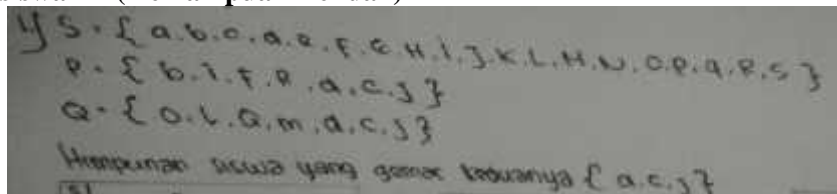 S = { a. b. c. d. e. F. G. H. i. J. K. L. M. N. O. P. q. R. S }
P = { b. i. F. R. a. c. j }
Q = { O. L. G. m. a. c. j }
Himpunan siswa yang gemar keduanya { a. c. j }
S